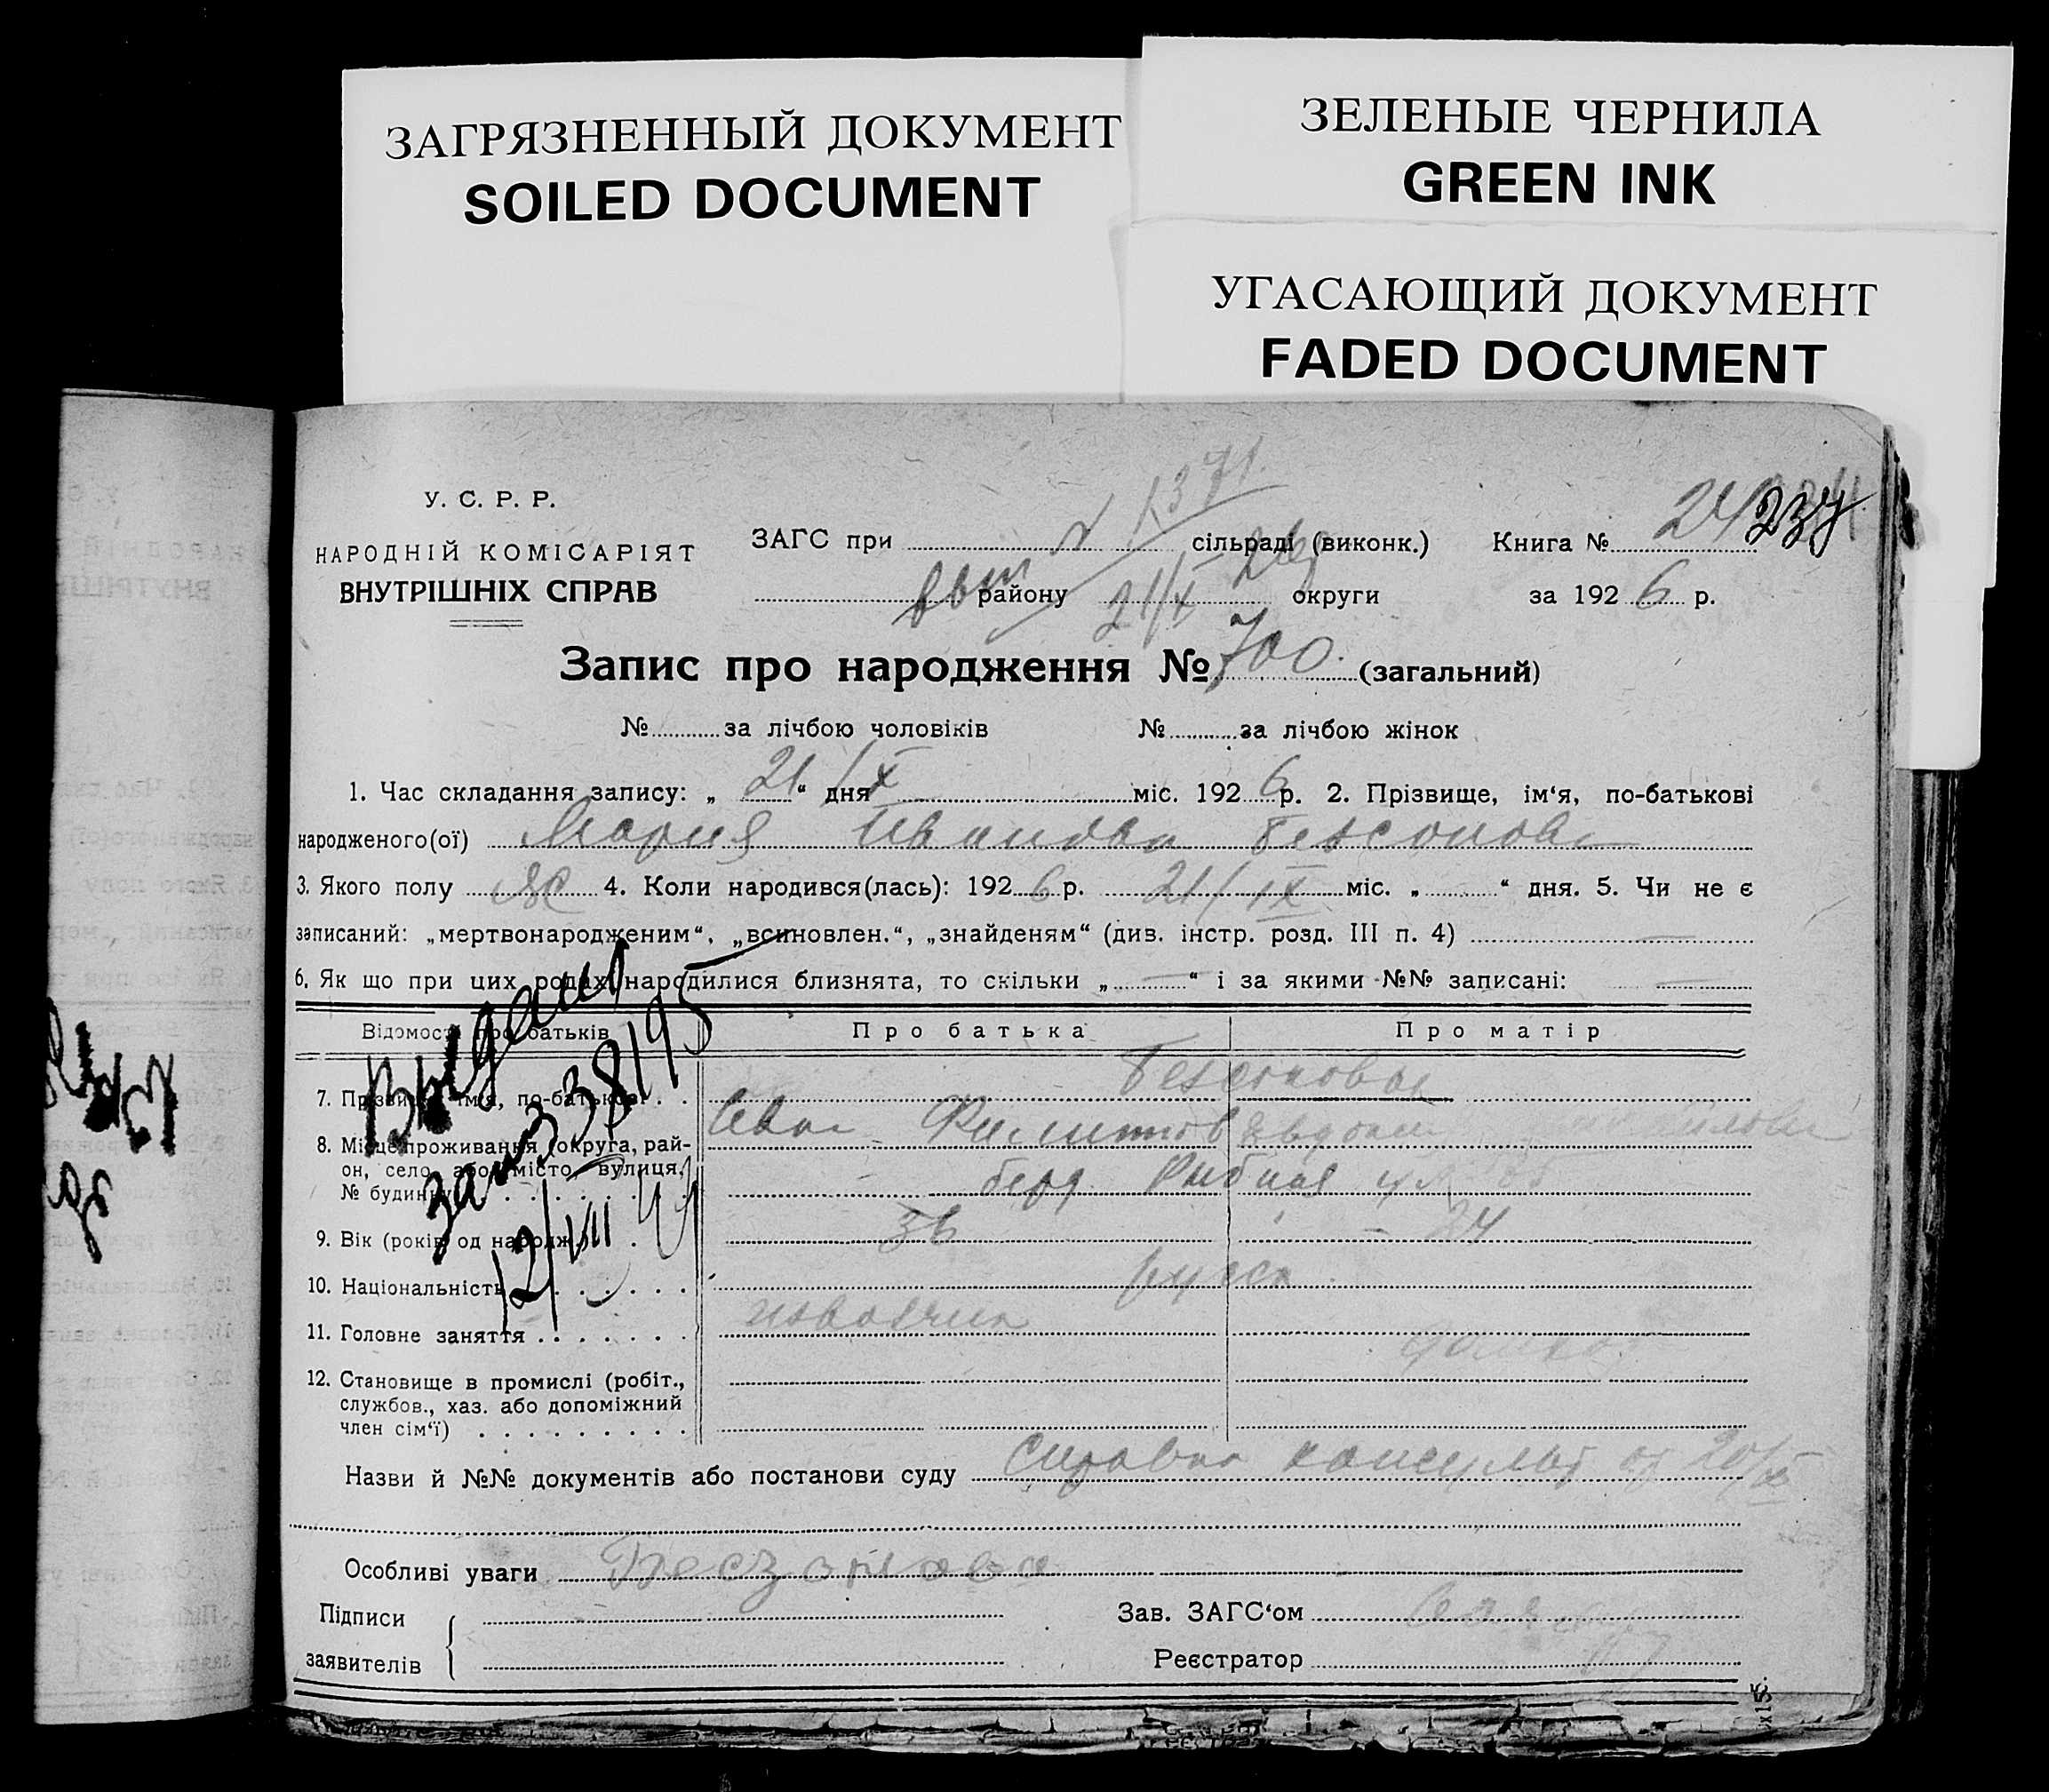 ЗАГРЯЗНЕННЫЙ ДОКУМЕНТ
SOILED DOCUMENT
ЗЕЛЕНЫЕ ЧЕРНИЛА
GREEN INK
УГАСАЮЩИЙ ДОКУМЕНТ
FADED DOCUMENT
У. С. Р. Р.
НАРОДНІЙ КОМІСАРІЯТ
ВНУТРІШНІХ СПРАВ
N 1371
ЗАГС при сільраді (виконк.) Книга № 24 237
району 21/X округи за 1926 р.
Запис про народження № 700. (загальний)
№ за лічбою чоловіків № за лічбою жінок
1. Час складання запису: „ 21 “ дня X міс. 1926 р. 2. Прізвище, ім‘я, по-батькові
народженого(ої) Мария Ивановна Безсонова
3. Якого полу Ж 4. Коли народився(лась): 1926 р. 21/IX міс. „ “ дня. 5. Чи не є
записаний: „мертвонародженим“, „всиновлен.“, „знайденям“ (див. інстр. розд. III п. 4) —
6. Як що при цих родах народилися близнята, то скільки „ — “ і за якими №№ записані: —
Відомості про батьків Про батька Про матір
Выдано
338195
12/VII
7. Прізвище, ім‘я, по-батькові . . Безсоновы
Иван Филиппов
8. Місце проживання (округа, рай-
он, село або місто, вулиця,
№ будинку) берд. Рибная
9. Вік (років од народж.) 36 - 24
10. Національність русск
11. Головне заняття извозчик
домхоз
12. Становище в промислі (робіт.,
службов., хаз. або допоміжний
член сім‘ї)
Назви й №№ документів або постанови суду Справка консульт от 20/X
Особливі уваги
Підписи
заявителів
Зав. ЗАГС‘ом
Реєстратор